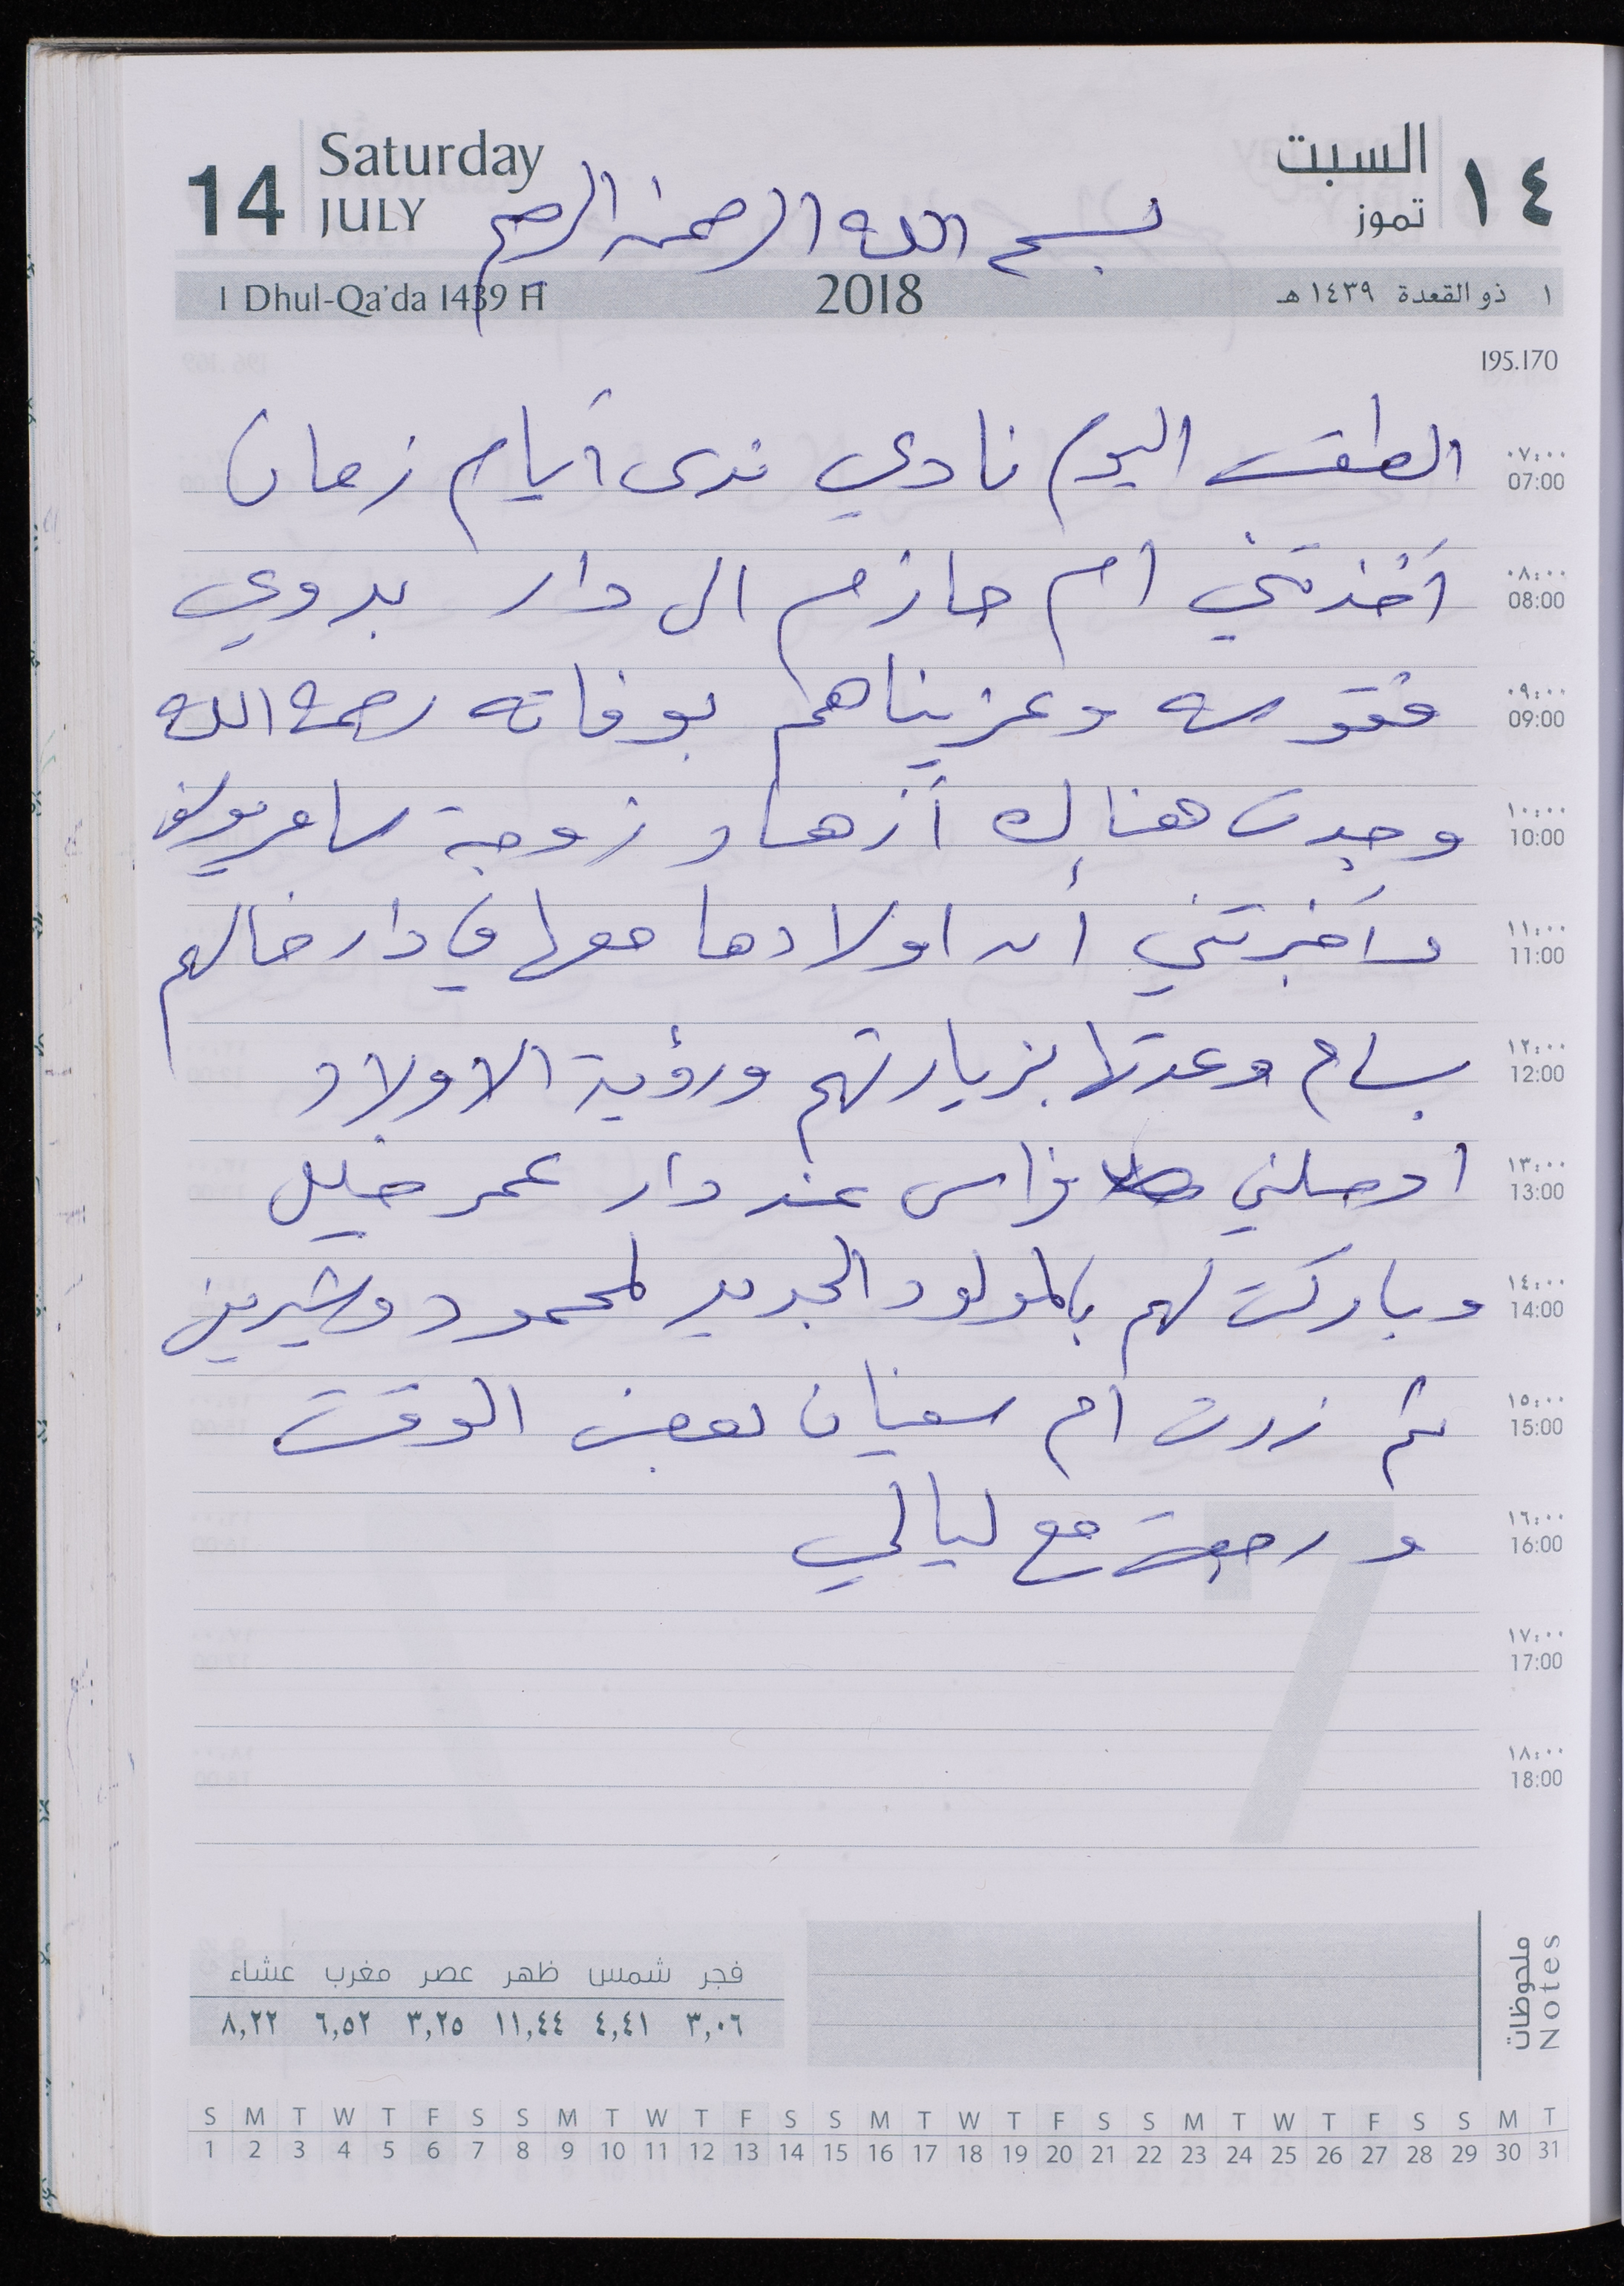 14 Saturday JULY
السبت ١٤ تموز
بسم الله الرحمن الرحيم
1 Dhul-Qa'da 1439 H 2018 ١ ذو القعدة ١٤٣٩ هـ
195.170
اليوم نادي ندى أيام زمان
٠٧:٠٠ 07:00
أخذتني ام حازم الى دار بدوي
٠٨:٠٠ 08:00
فقوسه وعزيناهم بوفاته رحمه الله
٠٩:٠٠ 09:00
وجدت هناك أزهار زوجة سامر
١٠:٠٠ 10:00
وأخبرتني أن اولادها معها في دار خالهم
١١:٠٠ 11:00
بسام وعدتها بزيارتهم ورؤية الاولاد
١٢:٠٠ 12:00
اوصلني فراس عند دار عمر خليل
١٣:٠٠ 13:00
وباركت لهم بالمولود الجديد لمحمود وشيرين
١٤:٠٠ 14:00
ثم زرت ام سفيان لبعض الوقت
١٥:٠٠ 15:00
ورجعت مع ليالي
١٦:٠٠ 16:00
١٧:٠٠ 17:00
١٨:٠٠ 18:00
ملحوظات Notes
فجر شمس ظهر عصر مغرب عشاء
٣,٠٦ ٤,٤١ ١١,٤٤ ٣,٢٥ ٦,٥٢ ٨,٢٢
S M T W T F S S M T W T F S S M T W T F S S M T W T F S S M T
1 2 3 4 5 6 7 8 9 10 11 12 13 14 15 16 17 18 19 20 21 22 23 24 25 26 27 28 29 30 31